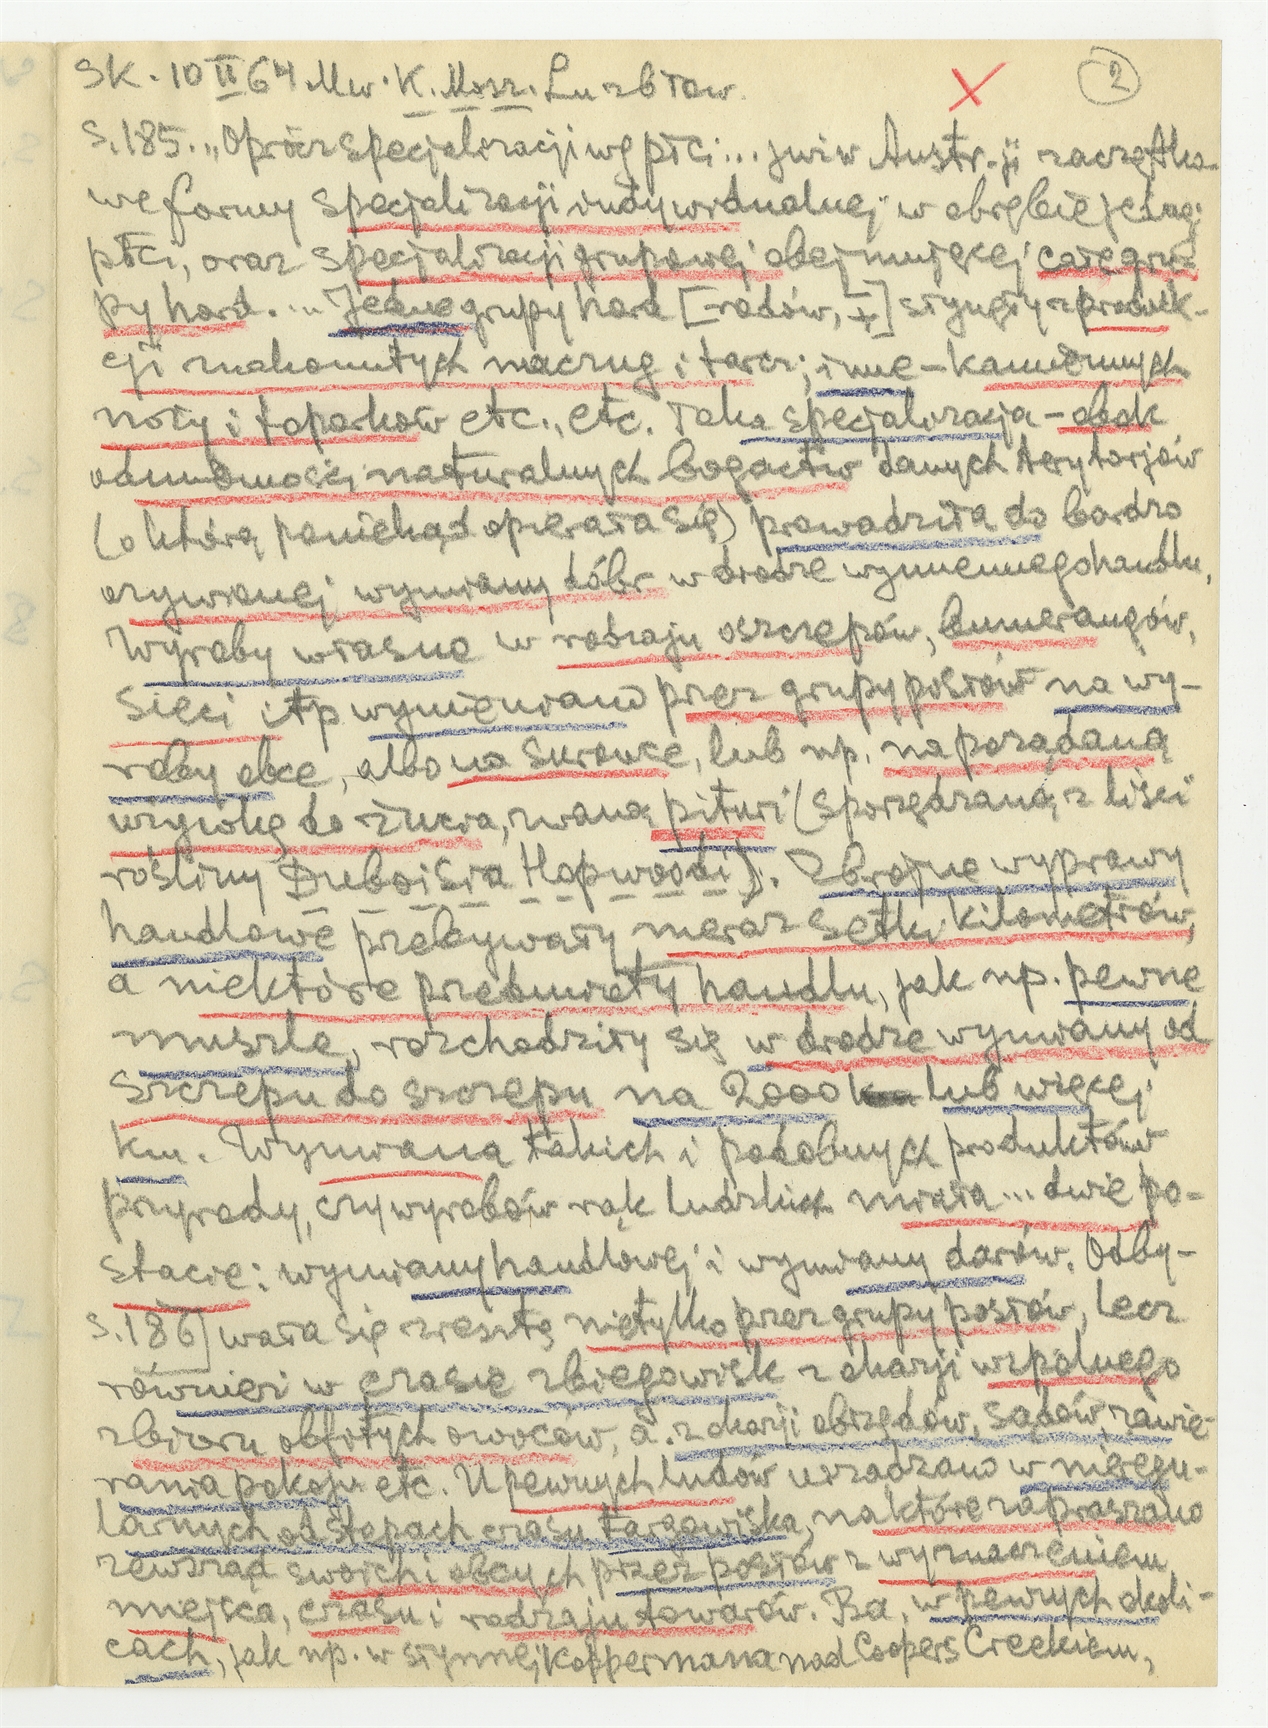 SK. 10 II 64 Mw. K. Mosz. Lu zbław. 2
s. 185. „Oprócz specjalizacji wg płci... już w Austr-ji zaczątko-
we formy specjalizacji indywidualnej w obrębie jednej
płci, oraz specjalizacji grupowej obejmującej całe gru-
py hord. ... Jedne grupy hord [-rodów, ] słynęły z produk-
cji znakomitych maczug i tarcz; inne – kamiennych
noży i toporków etc., etc. Taka specjalizacja – obok
odmienności naturalnych bogactw danych terytorjów
(o którą poniekąd opierała się) prowadziła do bardzo
ożywionej wymiany dóbr w drodze wymiennego handlu,
Wyroby własne w rodzaju oszczepów, bumerangów,
sieci itp wymieniano przez grupy posłów na wy-
roby obce, albo na surowce, lub np. na pożądaną
używkę do żucia, zwaną pituri (sporządzaną z liści
rośliny Duboisia Hopwoodi). Zbrojne wyprawy
handlowe przebywały nieraz setki kilometrów,
a niektóre przedmioty handlu, jak np. pewne
muszle, rozchodziły się w drodze wymiany od
szczepu do szczepu na 2000 lub więcej
km. Wymiana takich i podobnych produktów
przyrody, czy wyrobów rąk ludzkich miała ... dwie po-
stacie: wymiany handlowej i wymiany darów. Odby-
s. 186] wała się zresztą nietylko przez grupy posłów, lecz
również w czasie zbiegowisk z okazji wspólnego
zbioru obfitych owoców, a. z okazji obrzędów, sądów, zawie-
rania pokoju etc. U pewnych ludów urządzano w nieregu-
larnych odstępach czasu targowiska, na które zapraszano
zewsząd swoich i obcych przez posłów z wyznaczeniem
miejsca, czasu i rodzaju towarów. Ba, w pewnych okoli-
cach, jak np. w słynnej Koppermana nad Coopers Creekiem,